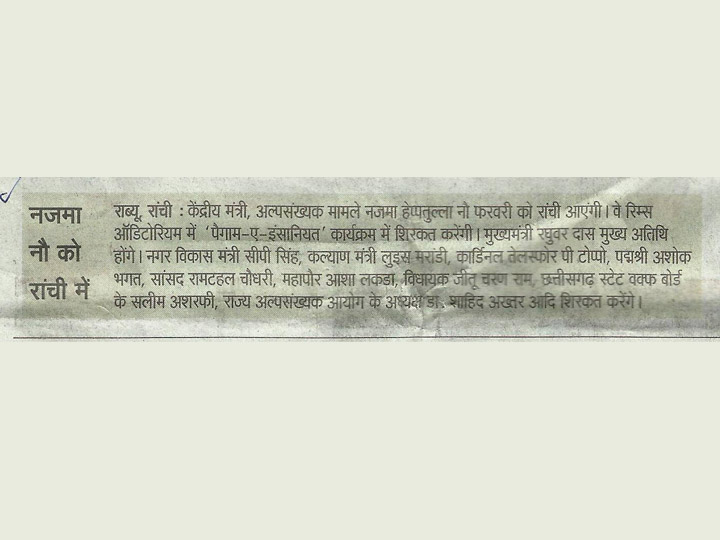 नजमा
नौ को
रांची में
राब्यू, रांची : केंद्रीय मंत्री, अल्पसंख्यक मामले नजमा हेप्पतुल्ला नौ फरवरी को रांची आएंगी। वे रिम्स
ऑडिटोरियम में 'पैगाम-ए-इंसानियत' कार्यक्रम में शिरकत करेंगी। मुख्यमंत्री रघुवर दास मुख्य अतिथि
होंगे। नगर विकास मंत्री सीपी सिंह, कल्याण मंत्री लुइस मरांडी, कार्डिनल तेलस्फोर पी टोप्पो, पद्मश्री अशोक
भगत, सांसद रामटहल चौधरी, महापौर आशा लकडा, विधायक जीतू चरण राम, छत्तीसगढ़ स्टेट वक्फ बोर्ड
के सलीम अशरफी, राज्य अल्पसंख्यक आयोग के अध्यक्ष डा. शाहिद अख्तर आदि शिरकत करेंगे।